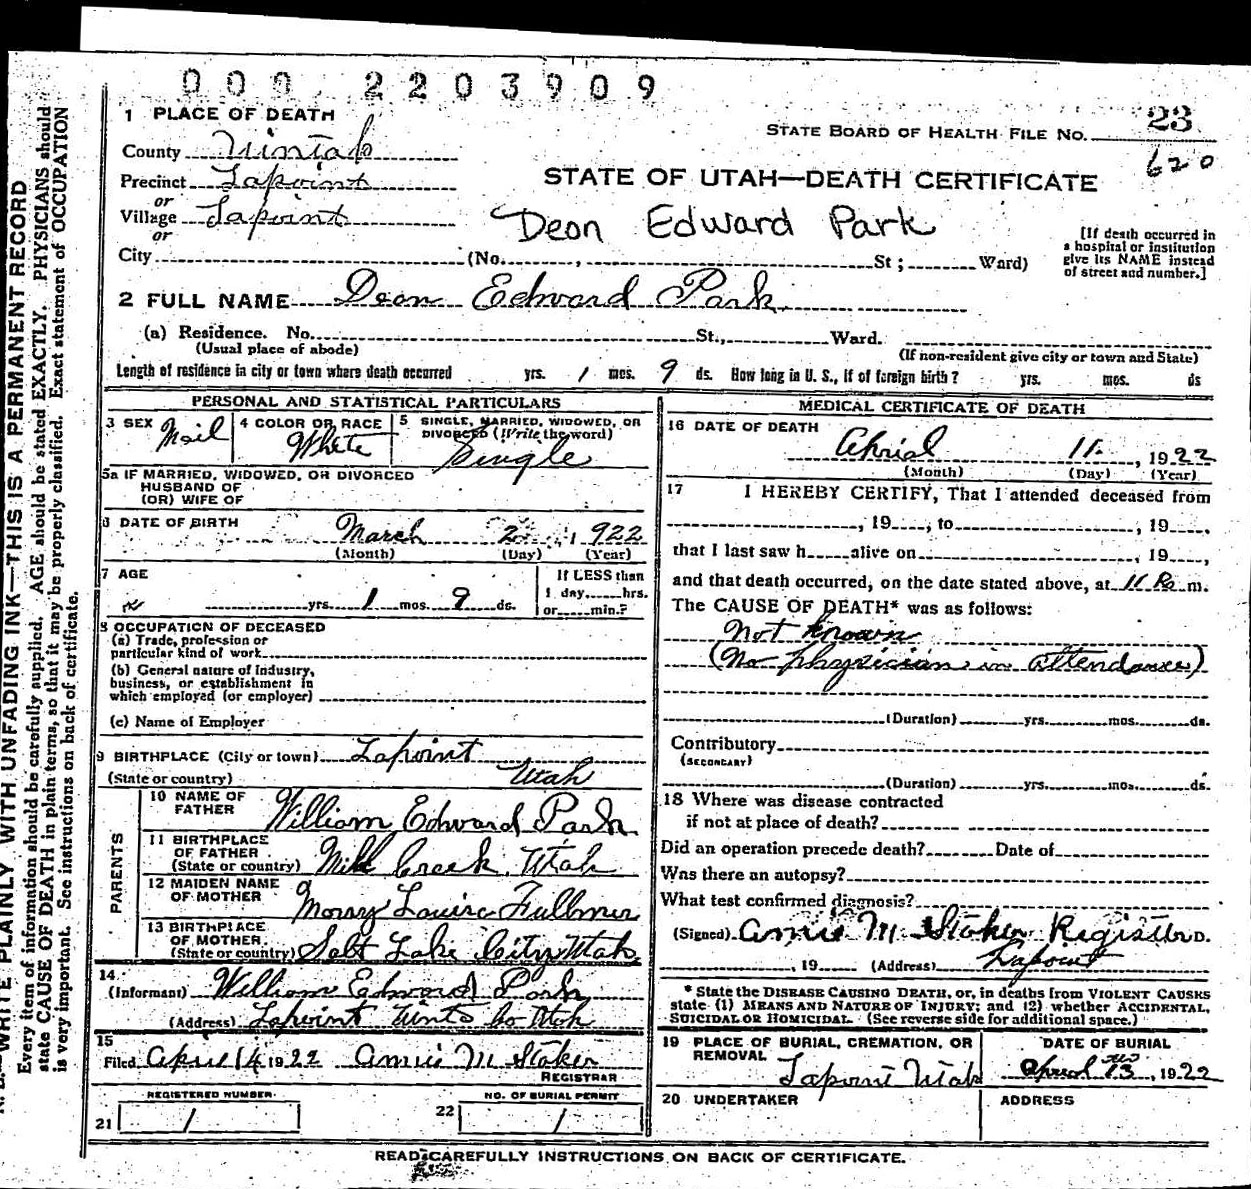 000 2203909
1 PLACE OF DEATH
STATE BOARD OF HEALTH FILE NO. 23
County Uintah
620
Precinct Lapoint
STATE OF UTAH—DEATH CERTIFICATE
or
Village Lapoint
Deon Edward Park
or
City (No. , St; Ward)
[If death occurred in
a hospital or institution
give its NAME instead
of street and number.]
2 FULL NAME Deon Edward Park
(a) Residence. No. St., Ward.
(Usual place of abode) (If non-resident give city or town and State)
Length of residence in city or town where death occurred yrs. 1 mos. 9 ds. How long in U. S., if of foreign birth? yrs. mos. ds
PERSONAL AND STATISTICAL PARTICULARS
3 SEX Mail
4 COLOR OR RACE White
5 SINGLE, MARRIED, WIDOWED, OR
DIVORCED (Write the word)
Single
5a IF MARRIED, WIDOWED, OR DIVORCED
HUSBAND OF
(OR) WIFE OF
6 DATE OF BIRTH March 2 1922
(Month) (Day) (Year)
7 AGE
yrs. 1 mos. 9 ds.
If LESS than
1 day hrs.
or min.?
8 OCCUPATION OF DECEASED
(a) Trade, profession or
particular kind of work
(b) General nature of industry,
business, or establishment in
which employed (or employer)
(c) Name of Employer
9 BIRTHPLACE (City or town) Lapoint
(State or country) Utah
PARENTS
10 NAME OF
FATHER William Edward Park
11 BIRTHPLACE
OF FATHER
(State or country) Mill Creek, Utah
12 MAIDEN NAME
OF MOTHER Morry Louisa Fullmer
13 BIRTHPLACE
OF MOTHER
(State or country) Salt Lake City Utah
14
(Informant) William Edward Park
(Address) Lapoint Uinta Co Utah
15
Filed April 14 1922 Amie M Stoker
REGISTRAR
REGISTERED NUMBER
21 1
NO. OF BURIAL PERMIT
22 1
MEDICAL CERTIFICATE OF DEATH
16 DATE OF DEATH
Aprial 11 , 1922
(Month) (Day) (Year)
17 I HEREBY CERTIFY, That I attended deceased from
, 19 , to , 19 ,
that I last saw h alive on , 19 ,
and that death occurred, on the date stated above, at 11 P. m.
The CAUSE OF DEATH* was as follows:
Not known
(No physician in attendance)
(Duration) yrs. mos. ds.
Contributory
(SECONDARY)
(Duration) yrs. mos. ds.
18 Where was disease contracted
if not at place of death?
Did an operation precede death? Date of
Was there an autopsy?
What test confirmed diagnosis?
(Signed) Amie M Stoker Register D.
, 19 (Address) Lapoint
* State the DISEASE CAUSING DEATH, or, in deaths from VIOLENT CAUSES
state (1) MEANS AND NATURE OF INJURY; and (2) whether ACCIDENTAL,
SUICIDAL OR HOMICIDAL. (See reverse side for additional space.)
19 PLACE OF BURIAL, CREMATION, OR
REMOVAL
Lapoint Utah
DATE OF BURIAL
Aprial 13 , 1922
20 UNDERTAKER
ADDRESS
READ CAREFULLY INSTRUCTIONS ON BACK OF CERTIFICATE.
WRITE PLAINLY WITH UNFADING INK—THIS IS A PERMANENT RECORD
Every item of information should be carefully supplied. AGE should be stated EXACTLY. PHYSICIANS should
state CAUSE OF DEATH in plain terms, so that it may be properly classified. Exact statement of OCCUPATION
is very important. See instructions on back of certificate.